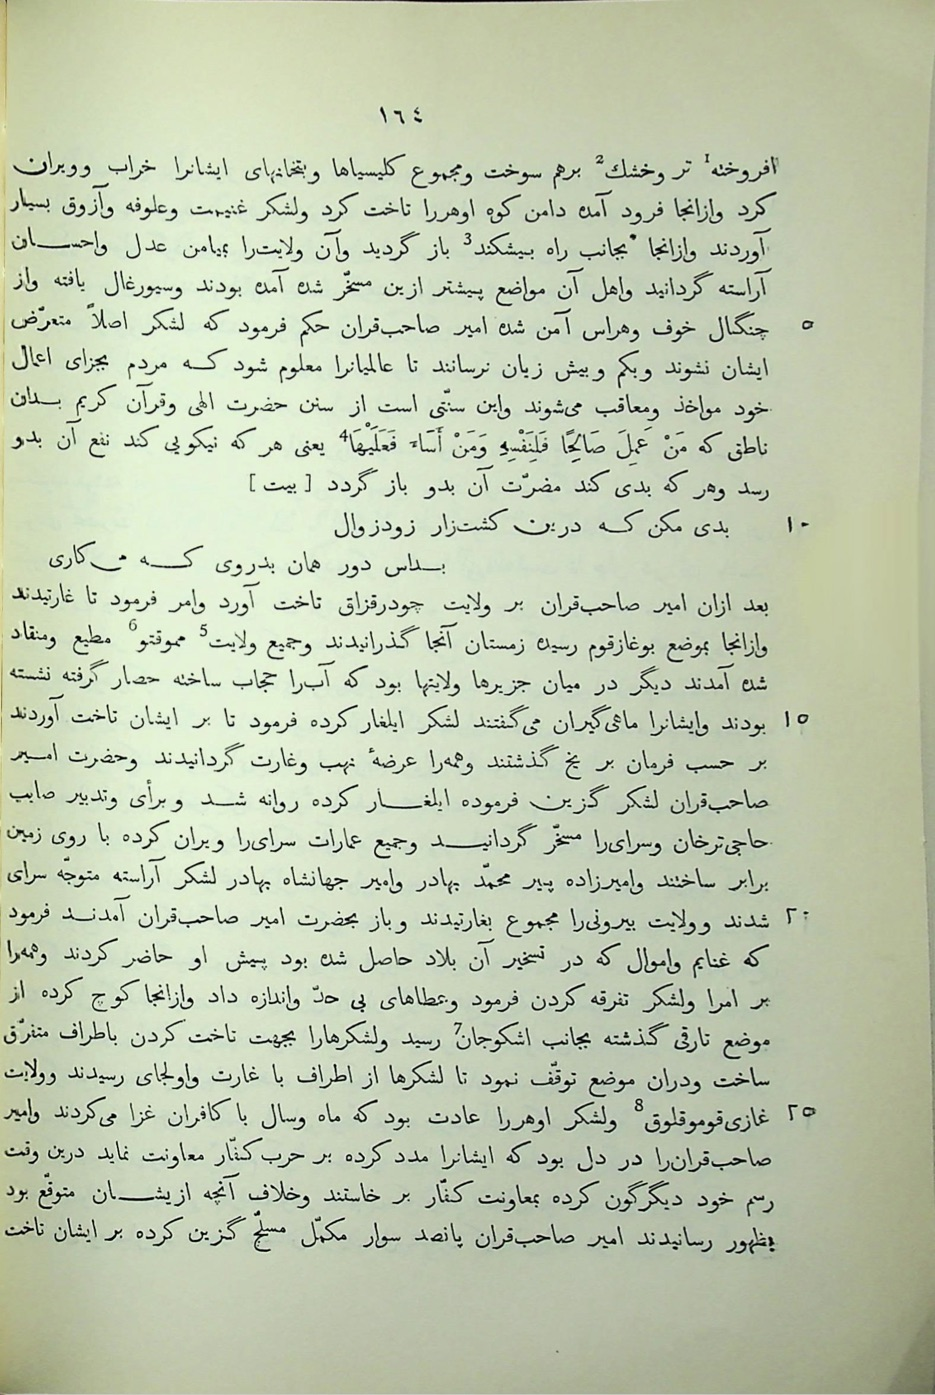 ١٦٤
افروخته1 تر وخشك2 برهم سوخت ومجموع كليسياها وبتخانهای ایشانرا خراب وویران
كرد وازانجا فرود آمده دامن كوه اوهررا تاخت كرد ولشكر غنیمت وعلوفه وآزوق بسیار
آوردند وازانجا *بجانب راه بیشكند3 باز گردید وآن ولایت‌را بمیامن عدل واحسان
آراسته گردانید واهل آن مواضع پیشتر ازین مسخّر شده آمده بودند وسیورغال یافته واز
٥ چنگال خوف وهراس آمن شده امیر صاحب‌قران حكم فرمود كه لشكر اصلاً متعرّض
ایشان نشوند وبكم وبیش زیان نرسانند تا عالمیانرا معلوم شود كه مردم بجزای اعمال
خود مواخذ ومعاقب می‌شوند واین سنّتی است از سنن حضرت الهی وقرآن كریم بدان
ناطق كه مَنْ عَمِلَ صَالِحًا فَلِنَفْسِهِ وَمَنْ أَسَاءَ فَعَلَيْهَا4 یعنی هر كه نیكویی كند نفع آن بدو
رسد وهر كه بدی كند مضرّت آن بدو باز گردد [بیت]
١٠ بدی مكن كه درین كشت‌زار زودزوال
بداس دور همان بدروی كه می‌كاری
بعد ازان امیر صاحب‌قران بر ولایت چودرقزاق تاخت آورد وامر فرمود تا غارتیدند
وازانجا بموضع بوغازقوم رسیده زمستان آنجا گذرانیدند وجمیع ولایت5 مموقتو6 مطیع ومنقاد
شده آمدند دیگر در میان جزیرها ولایتها بود كه آب‌را حجاب ساخته حصار گرفته نشسته
١٥ بودند وایشانرا ماهی‌گیران می‌گفتند لشكر ایلغار كرده فرمود تا بر ایشان تاخت آوردند
بر حسب فرمان بر یخ گذشتند وهمه‌را عرضهٔ نهب وغارت گردانیدند وحضرت امیر
صاحب‌قران لشكر گزین فرموده ایلغار كرده روانه شد وبرأی وتدبیر صایب
حاجی‌ترخان وسرای‌را مسخّر گردانید وجمیع عمارات سرای‌را ویران كرده با روی زمین
برابر ساختند وامیرزاده پیر محمّد بهادر وامیر جهانشاه بهادر لشكر آراسته متوجّه سرای
٢٠ شدند وولایت بیرونی‌را مجموع بغارتیدند وباز بحضرت امیر صاحب‌قران آمدند فرمود
كه غنایم واموال كه در تسخیر آن بلاد حاصل شده بود پیش او حاضر كردند وهمه‌را
بر امرا ولشكر تفرقه كردن فرمود وعطاهای بی حدّ واندازه داد وازانجا كوچ كرده از
موضع تارقی گذشته بجانب اشكوجان7 رسید ولشكرهارا بجهت تاخت كردن باطراف متفرّق
ساخت ودران موضع توقّف نمود تا لشكرها از اطراف با غارت واولجای رسیدند وولایت
٢٥ غازی‌قوموقلوق8 ولشكر اوهررا عادت بود كه ماه وسال با كافران غزا می‌كردند وامیر
صاحب‌قران‌را در دل بود كه ایشانرا مدد كرده بر حرب كفّار معاونت نماید درین وقت
رسم خود دیگرگون كرده بمعاونت كفّار بر خاستند وخلاف آنچه ازیشان متوقّع بود
بظهور رسانیدند امیر صاحب‌قران پانصد سوار مكمّل مسلّح گزین كرده بر ایشان تاخت